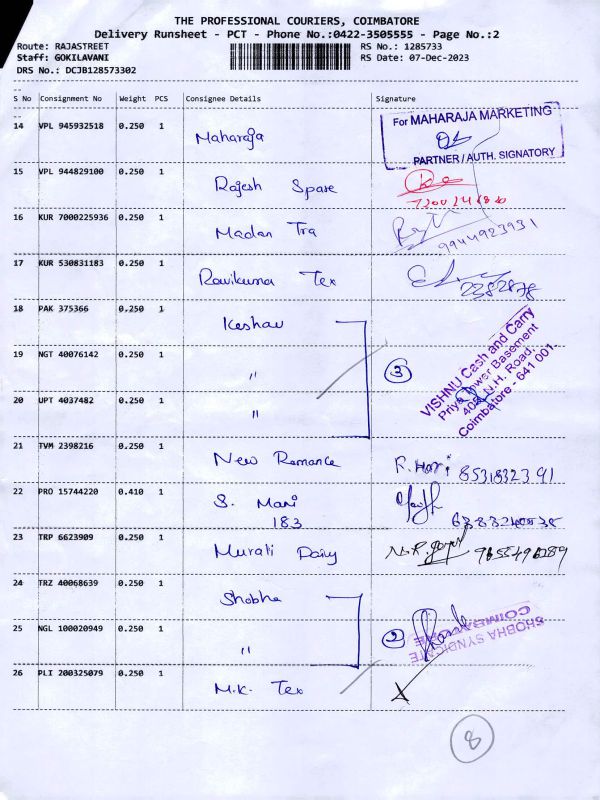 THE PROFESSIONAL COURIERS, COIMBATORE
Delivery Runsheet - PCT - Phone No.:0422-3505555 - Page No.:2
Route: RAJASTREET RS No.: 1285733
Staff: GOKILAVANI RS Date: 07-Dec-2023
DRS No.: DCJB128573302
S No Consignment No Weight PCS Consignee Details Signature
14 VPL 945932518 0.250 1 Maharaja For MAHARAJA MARKETING
PARTNER / AUTH. SIGNATORY
15 VPL 944829100 0.250 1 Rajesh Spare
16 KUR 7000225936 0.250 1 Madan Tra 9944923931
17 KUR 530831183 0.250 1 Ravikuma Tex 2382878
18 PAK 375366 0.250 1 Keshav
19 NGT 40076142 0.250 1 " 3 VISHNU Cash and Carry
Priya Tower Basement
402, N.H. Road,
Coimbatore - 641 001.
20 UPT 4037482 0.250 1 "
21 TVM 2398216 0.250 1 New Romance R. Hari 8531832391
22 PRO 15744220 0.410 1 S. Mani
183
23 TRP 6623909 0.250 1 Murali Dairy
24 TRZ 40068639 0.250 1 Shobha
25 NGL 100020949 0.250 1 " 2 SHOBHA SYNDICATE
COIMBATORE
26 PLI 200325079 0.250 1 M.K. Tex
8